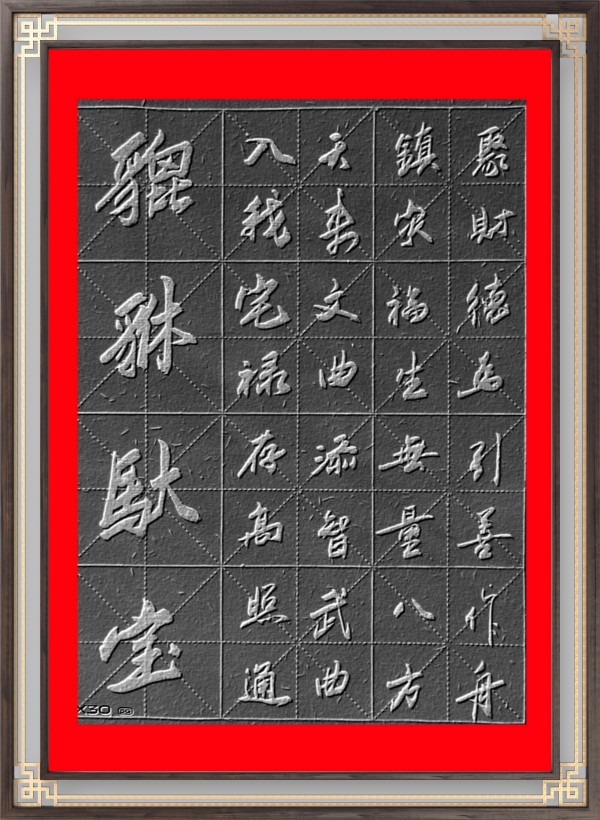 聚財德為引善作舟
鎮家福生無量八方
天来文曲添智武曲
入我宅禄存高照通
貔貅馱宝
X30